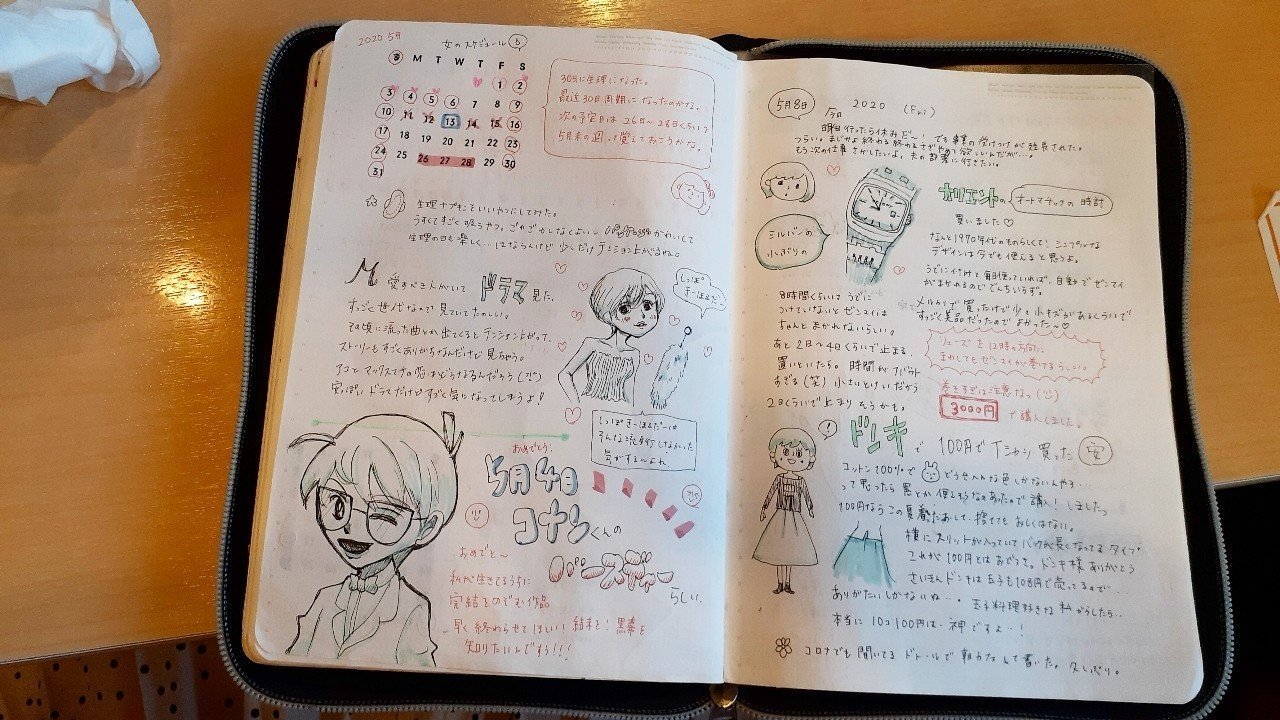 2020 5月
女のスケジュール
S M T W T F S
1 2
3 4 5 6 7 8 9
10 11 12 13 14 15 16
17 18 19 20 21 22 23
24 25 26 27 28 29 30
31
30日に生理になった。
最近30日周期になったのかな。
次の予定日は26日〜28日くらいで
5月末の週って覚えておこうかな。
生理ナプキンをいいやつにしてみた。
うすくてすごく吸うやつ。ごわごわしなくてよい。かわいくて
生理の日も楽しく…はならんけど少しだけテンション上がるよね。
M 愛すべき人がいて ドラマ 見た。
すっごく世代なので見ててたのしい。
その頃に流れた曲とか出てくるとテンション上がって、
ストーリーもすごくありがちなんだけど見ちゃう。
アユとマックスマサの恋はどうなるんだろう
安っぽいドラマだけどすっごく気になってしまうよ!
しっぽ
きーほるだー
しっぽきーほるだーは
そんな流行しなかった
気がするんよね
おめでとう!
5月4日
コナンくんの
バースデー
らしい、
おめでと〜
私が生きてるうちに
完結をのぞむ作品
早く終わらせてほしい!結末を!黒幕を
知りたいんですう!!!
5月8日
2020 (Fri)
今日
明日行ったら休みだ〜!でも事業の受けつけが延長された。
つらい。まじかよ終わる終わるさぎやめて欲しいんだが…。
もう次の仕事さがしたいよ、夫の部署に行きたい。
ミルバンの
小ぶりの
オリエントの オートマチックの時計
買いました♡
なんと1970年代のものらしくて!シンプルな
デザインは今でも使えると思うよ。
うでに付けて毎日使っていれば、自動でゼンマイ
がまかれるのでとまらいず。
メルカリで買ったけど少々小キズがあるくらいで
すっごく美品だったのでよかった〜♡
8時間くらいはうでに
つけていないとゼンマイは
ちゃんとまかれないらしい。
あと2日〜4日くらいで止まる。
置いといたら。時間がアバウト
すぎる(笑) 小さいとけいだから
2日くらいで止まりそうかも。
リューズを12時の方向に
まわしてもゼンマイが巻けるらしい。
巻きすぎは注意なっ
3000円 で購入しました。
ドンキ で100円でTシャツ買った 安
コットン100%で どうせへんな色しかないんやろ…
って思ったら黒とか使えそうなのあったので購入しましたっ
100円ならこの夏着たおして、捨ててもおしくはない。
横にスリットが入っていてバックが長くなってるタイプ
これが100円とはあざっす。ドンキ様ありがとう
さいきんドンキは玉子も108円で売ってるので…
ありがたいしかないね…。玉子料理好きな私からしたら…
本当に10コ100円は、神ですよ…!
コロナでも開いてるドトールで朝カフェして書いた。久しぶり。